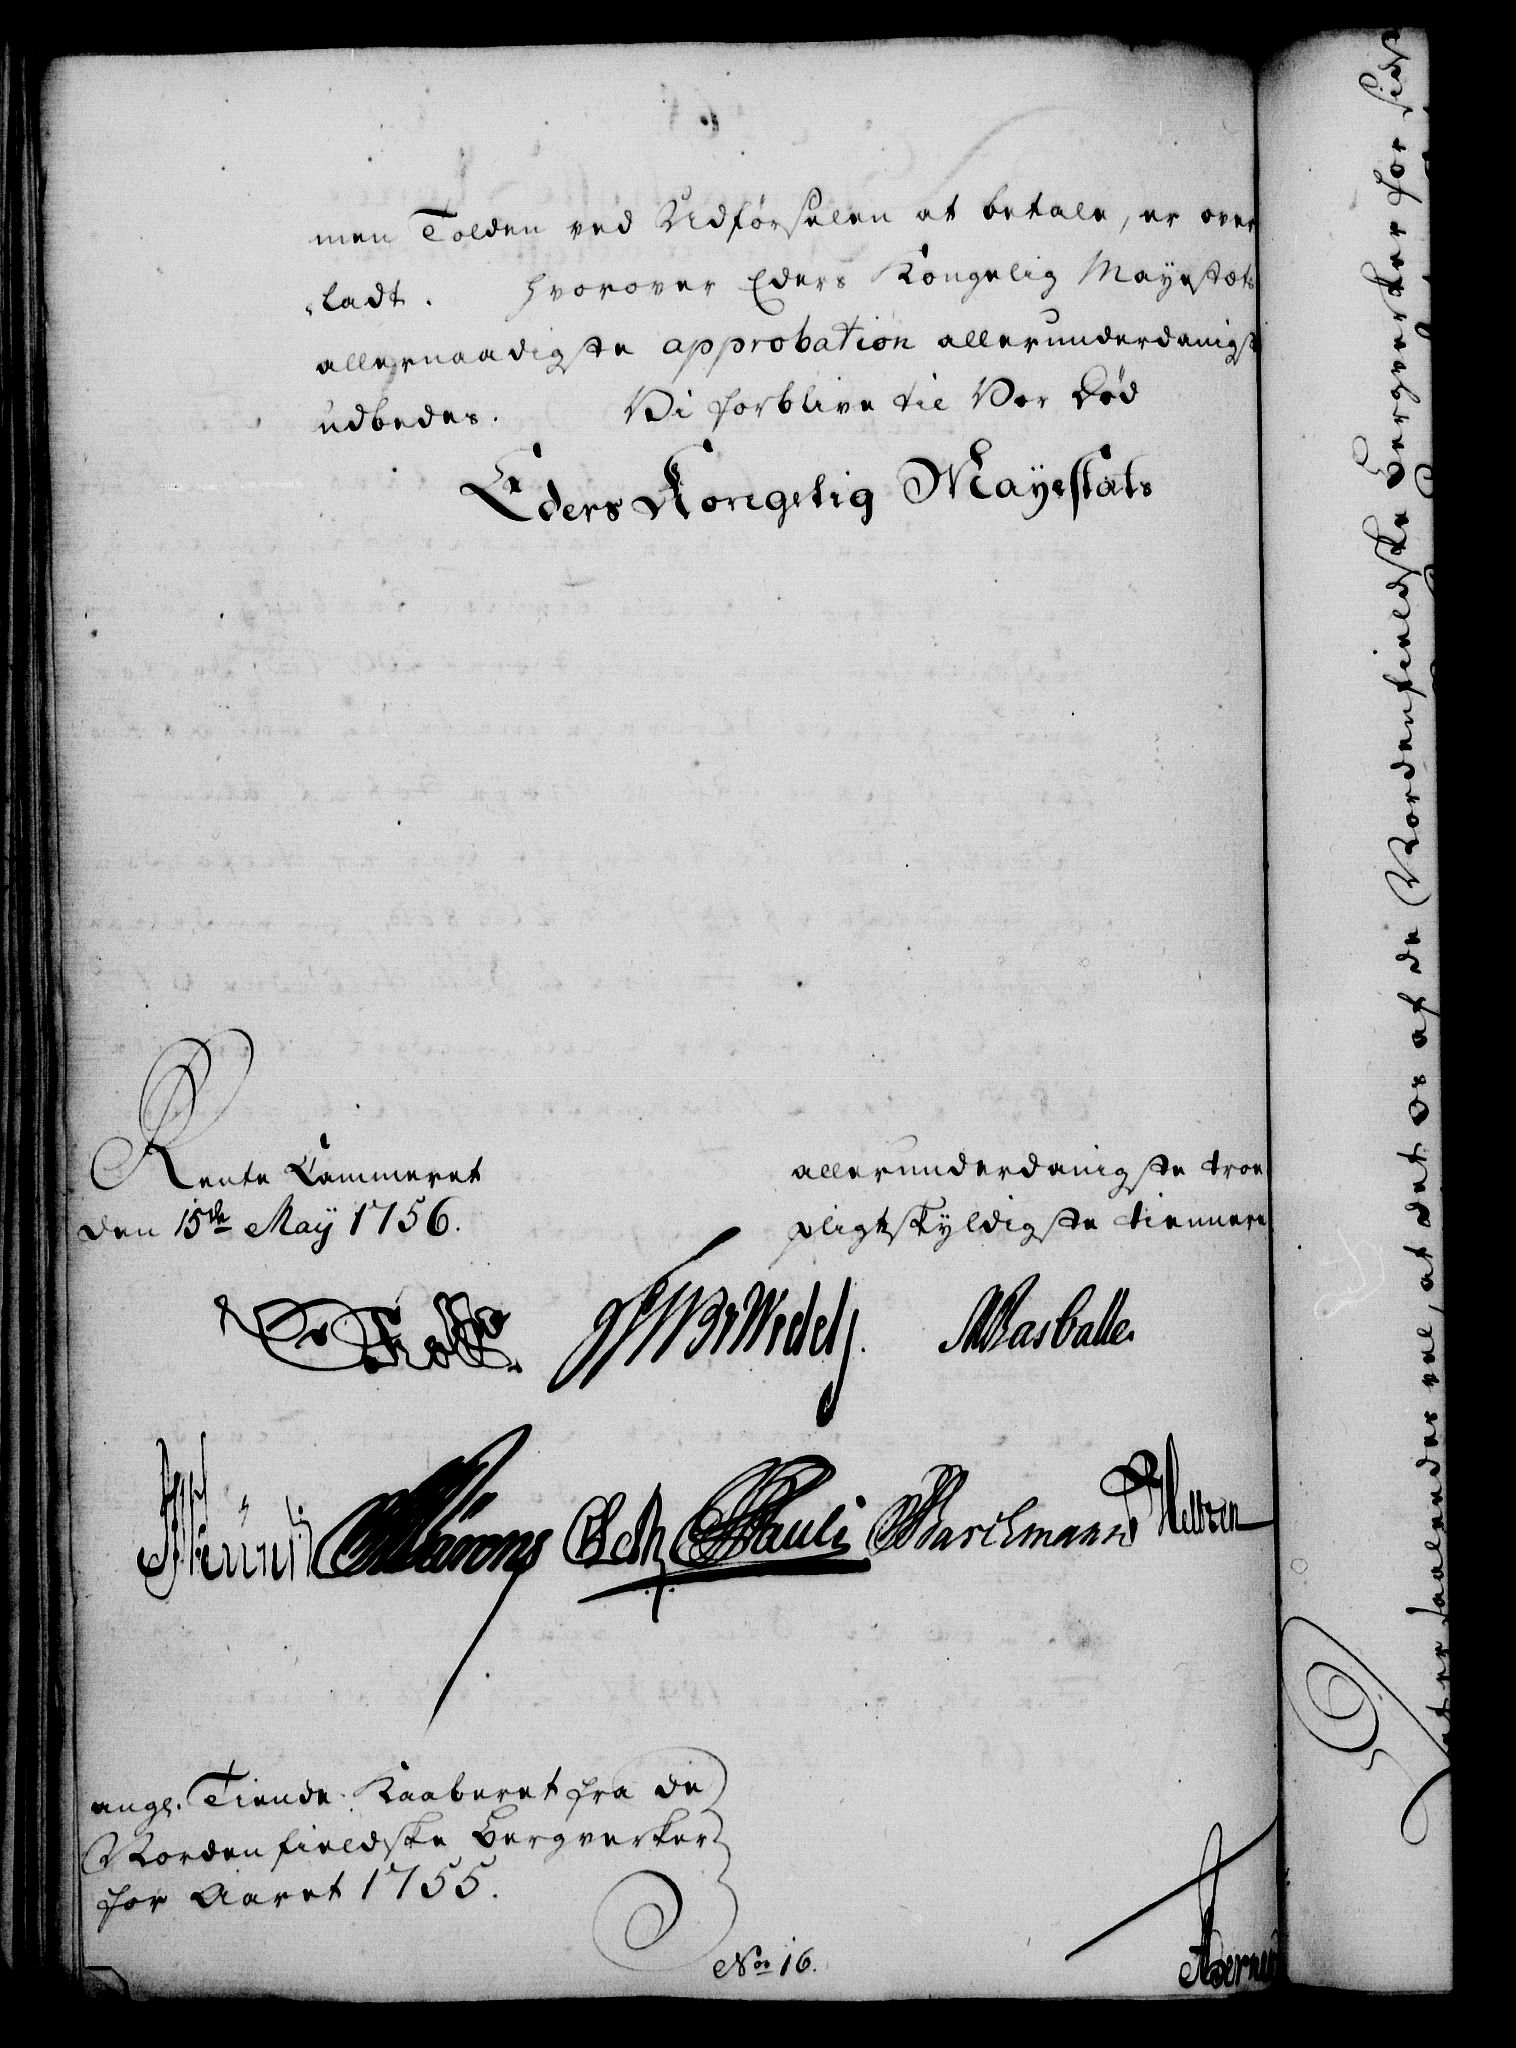 men Tolden ved Udførselen at betale, er over
„ladt. Hvorover Eders Kongelig Mayestæts
allernaadigste approbation allerunderdanigst
udbedes. Vi forblive til Vor Død
Eders Kongelig Mayestæts
Rente Cammeret
den 15de May 1756.
allerunderdanigste troe
pligtskyldigste tiennere
Holst.
Wedel
Basballe.
Pauli
Barchmann
ang. Tiende Kaaberet fra de
Nordenfieldske Bergverker
for Aaret 1755.
No 16.
saaledes vel, at det os af de Nordenfieldske Bergverker for sidst